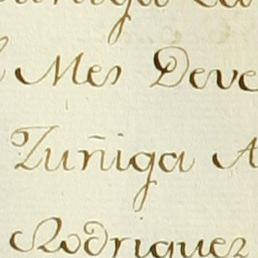 Mes Deve
Zuñiga A
Rodriguez